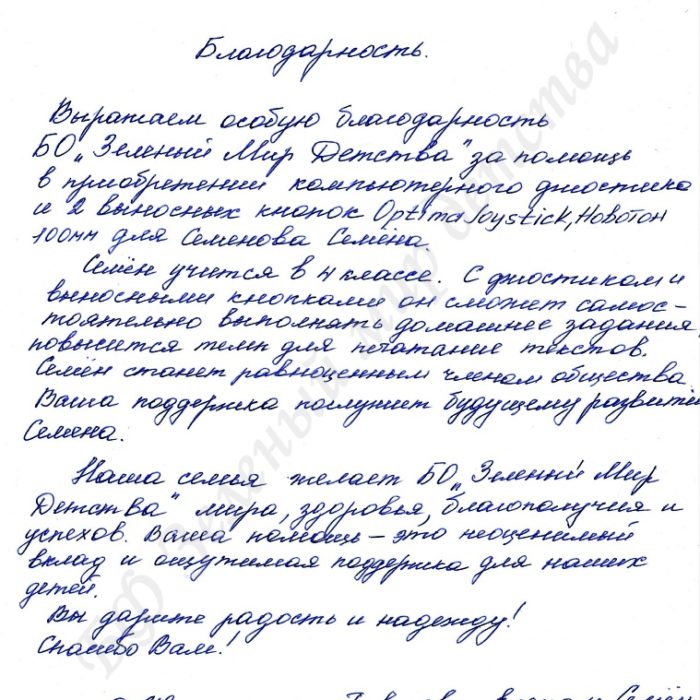 Благодарность.
Выражаем особую благодарность
БО „Зеленый Мир Детства" за помощь
в приобретении компьютерного джостика
и 2 выносных кнопок Optima Joystick, Новотон
100мм для Семенова Семёна.
Семён учится в 4 классе. С джостиком и
выносными кнопками он сможет самос-
тоятельно выполнять домашнее задания,
повысится темп для печатание текстов.
Семён станет равноценным членом общества.
Ваша поддержка послужит будущему развити
Семена.
Наша семья желает БО „Зеленый Мир
Детства" мира, здоровья, благополучия и
успехов. Ваша помощь – это неоценимый
вклад и ощутимая поддержка для наших
детей.
Вы дарите радость и надежду!
Спасибо Вам!
БФ Зеленый мир детства